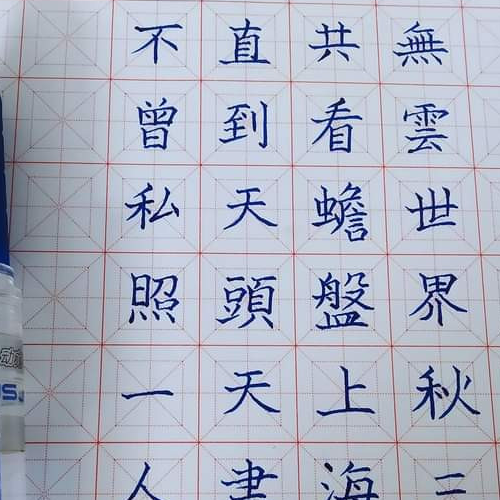 無雲世界秋三
共看蟾盤上海
直到天頭天盡
不曾私照一人